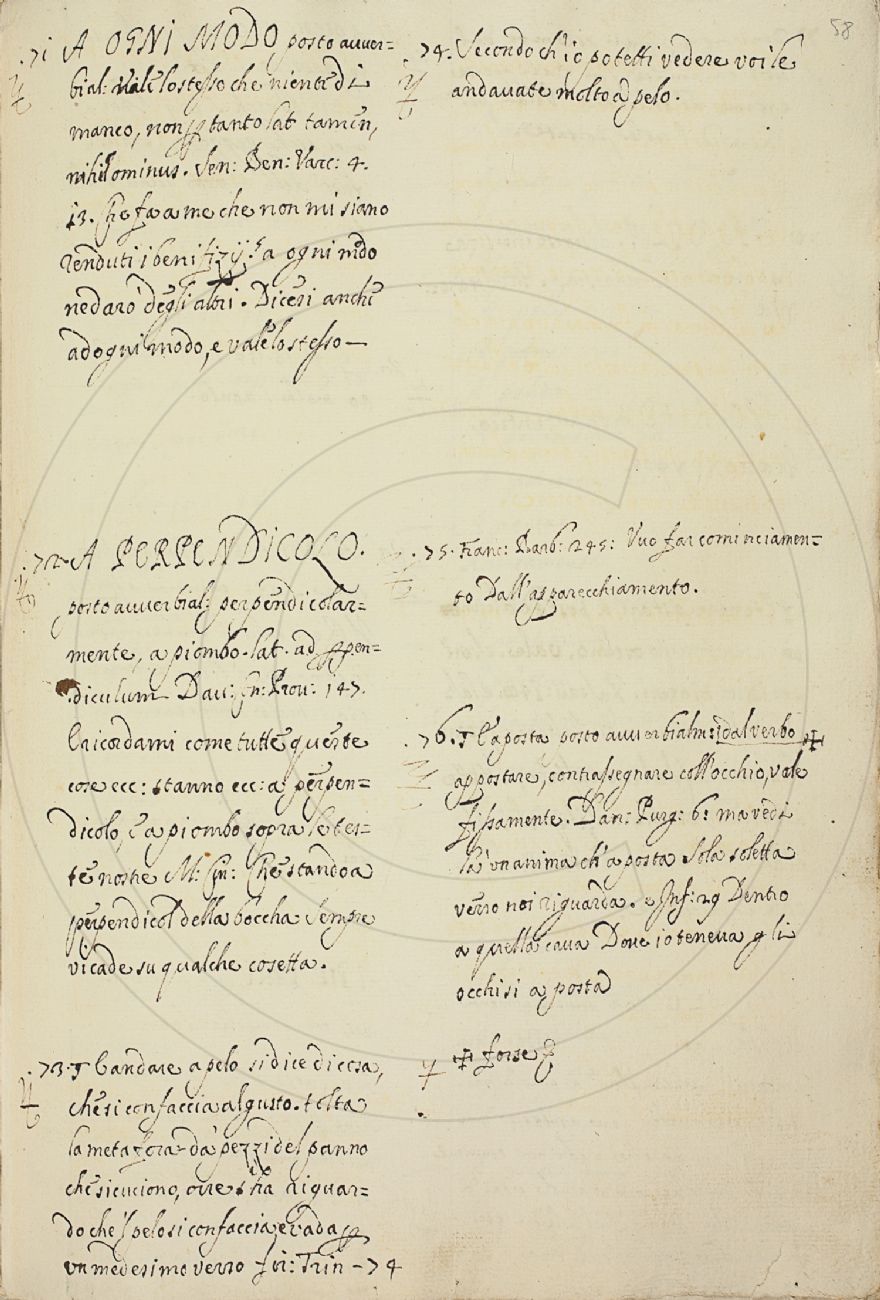 71 A OGNI MODO posto auuer=
bial: vale lo stesso che niente di
manco, non p tanto lat tamen,
nihilominus. Sen: Ben: Varc: 4.
13. Che fa a me che non mi siano
renduti i benifizij? a ogni modo
ne daro degli altri. Dicesi anche
ad ogni modo, e vale lo stesso —
72 A PERPENDICOLO.
posto auuerbial: perpendicolar=
mente, a piombo. lat. ad ppen=
diculum Dau: Prou: 147.
Ricordami come tutte queste
cose ecc: stanno ecc: a perpen=
dicolo, e a piombo sopra le tes=
te nostre M: Che stando a
perpendicol della boccha sempre
vi cade su qualche cosetta.
73. andare a pelo si dice di cosa,
che si confaccia al gusto. tolta
la metafora da pezzi del panno
che si cuciono, oue s'ha riguar=
do che 'l pelo si confaccia e vada p
vn medesimo verso fir: Trin — 74
58
74. Secondo ch'io potetti vedere voi le
andauate molto a pelo.
75. Franc: Barb: 245: Vuo far cominciamen=
to Dall'apparecchiamento.
76. A posta posto auuerbialm: dal verbo ✠
appostare, contrassegnare coll'occhio, vale
fissamente. Dan: Purg: 6: ma vedi
la vn anima ch'a posta sola soletta
verso noi riguarda. e Inf: 29 Dentro
a quella caua Doue io teneua gli
occhi si a posta
✠ forse